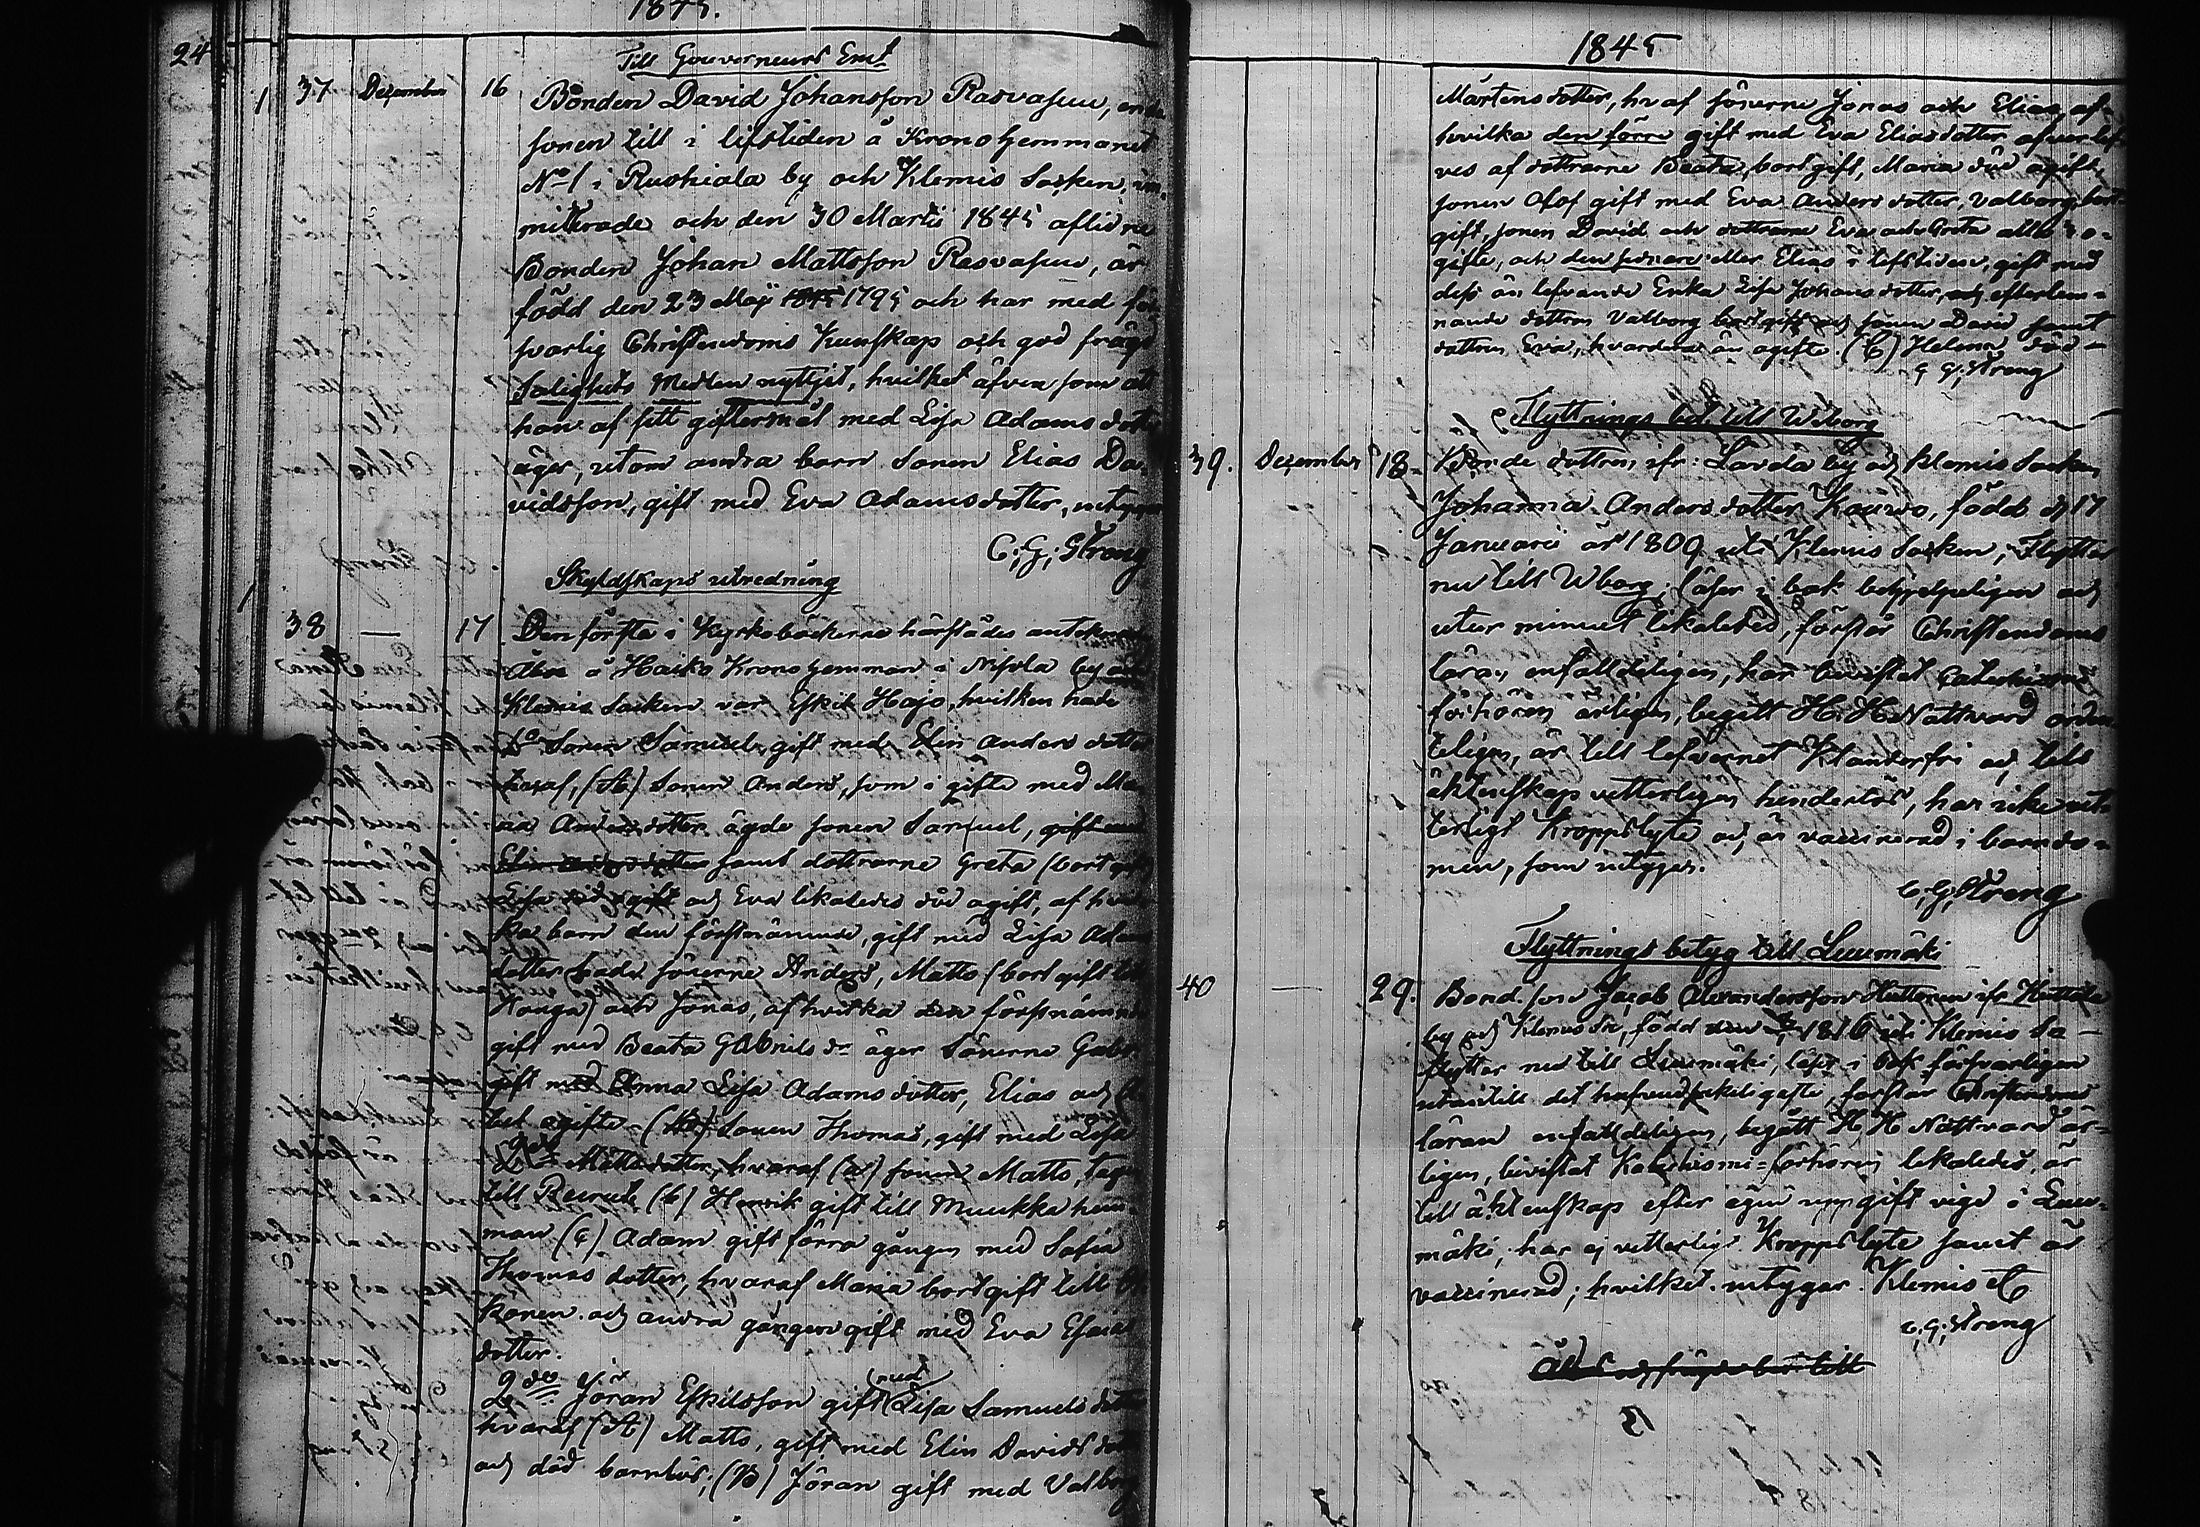 1845.
24
Till Gouverneurs Emt
1 37 Dezember 16 Bonden David Johansson Rasvasuu, enda
sonen till i lifstiden å Krono hemmanet
No 1 i Ruohiala by och Klemis Socken, im-
mitterade och den 30 Martii 1845 aflidne
Bonden Johan Mattsson Rasvasuu, är
född den 23 Maij 1795 och har med för
svarlig Christendoms Kunskap och god frägd
Salighets Medlen nyttjat, hvilket äfven som att
han af sitt giftermål med Lisa Adams dotter
äger, utom andra barn Sonen Elias Da-
vidsson, gift med Eva Adamsdotter, intygar
C; G; Streng
Skyldskaps utredning
1
38 — 17 Den första i Kyrkoböckerna härstädes anteknade
Åbon å Haiko Krono hemman i Nisola by och
Klemis Socken var Eskil Hajo, hvilken hade
1o Sonen Samuel, gift med Elin Anders dotter
hvaraf, (A) Sonen Anders, som i gifte med Ma-
ria Anders dotter ägde sonen Samuel, gift med
Elin samt dottrarne Greta (bortgift)
Lisa och Eva likaledes död ogift, af hvil-
ka barn den förstnämnde, gift med Lisa Adams
dotter hade sönerne Anders, Matts (bortgift till
Konga) och Jonas, af hvilka den förstnämnde
gift med Beata Gabriels dr äger Sönerne Gabr
gift med Anna Lisa Adams dotter, Elias och
ogifte - (B) Sonen Thomas, gift med Lisa
Matts dotter, hvaraf (a) sonen Matts,
till (b) Henrik gift till Muukka hem-
man (c) Adam gift förra gången med Sofia
Thomas dotter, hvaraf Maria bortgift till
konen och andra gången gift med Eva Esaias
dotter.
2do Jöran Eskilsson gift med Lisa Samuels dotter
hvaraf (A) Matts, gift med Elin Davids dotter
och död barnlös; (B) Jöran gift med Valborg
1845
Mårtens dotter, hvaf sönerne Jonas och Elias, af
hvilka den förre gift med Eva Elias dotter efterlef-
ves af dottrarne Beata, bortgift, Maria död ogift,
sonen Olof gift med Eva Anders dotter, Valborg bort-
gift, sonen David och dottrarne Eva och Greta alla o-
gifte, och den senare eller Elias i lifstiden, gift med
dess än lefvande Enka Lisa Johans dotter, och efterlem-
nande dottren Valborg sonen David samt
dottren Eva, hvardera än ogifte. (C) Helena död -
C; G; Streng
Flyttnings bet. till Wiborg
39. Dezember 18 - Bonde dottren ifr: Lavola by och Klemis Socken
Johanna Anders dotter Kouvo, född d 17
Januarii år 1809 uti Klemis Socken, flyttar
nu till Wborg; läser i bok behjelpeligen och
utur minnet likaledes, förstår Christendoms
läran enfalldeligen, har bevistat Catechismi
förhören årligen, begått H. H. Nattvard orden-
teligen, är till lefvernet Klanderfri och till
äktenskap vetterligen hinderlös, har icke vet-
terligt Kroppslyte och är vaccinerad i barndo-
men, som intygas.
C; G; Streng
Flyttnings betyg till Luumäki
40 — 29. Bond. son Jacob Alexandersson Huttunen ifr Huttula
by och Klemis Sn, född den 1816 uti Klemis So
flyttar nu till Luumäki; läst i bok försvarligen
utantill det hufvudsakeligaste, förstår Christendoms
läran enfalldeligen, begått H. H. Nattvard år-
ligen, bevistat Katechismi-förhören likaledes, är
till äktenskap efter egen uppgift vigd i Luu-
mäki; har ej vetterligt Kroppslyte samt är
vaccinerad; hvilket intygar. Klemis
C; G; Streng